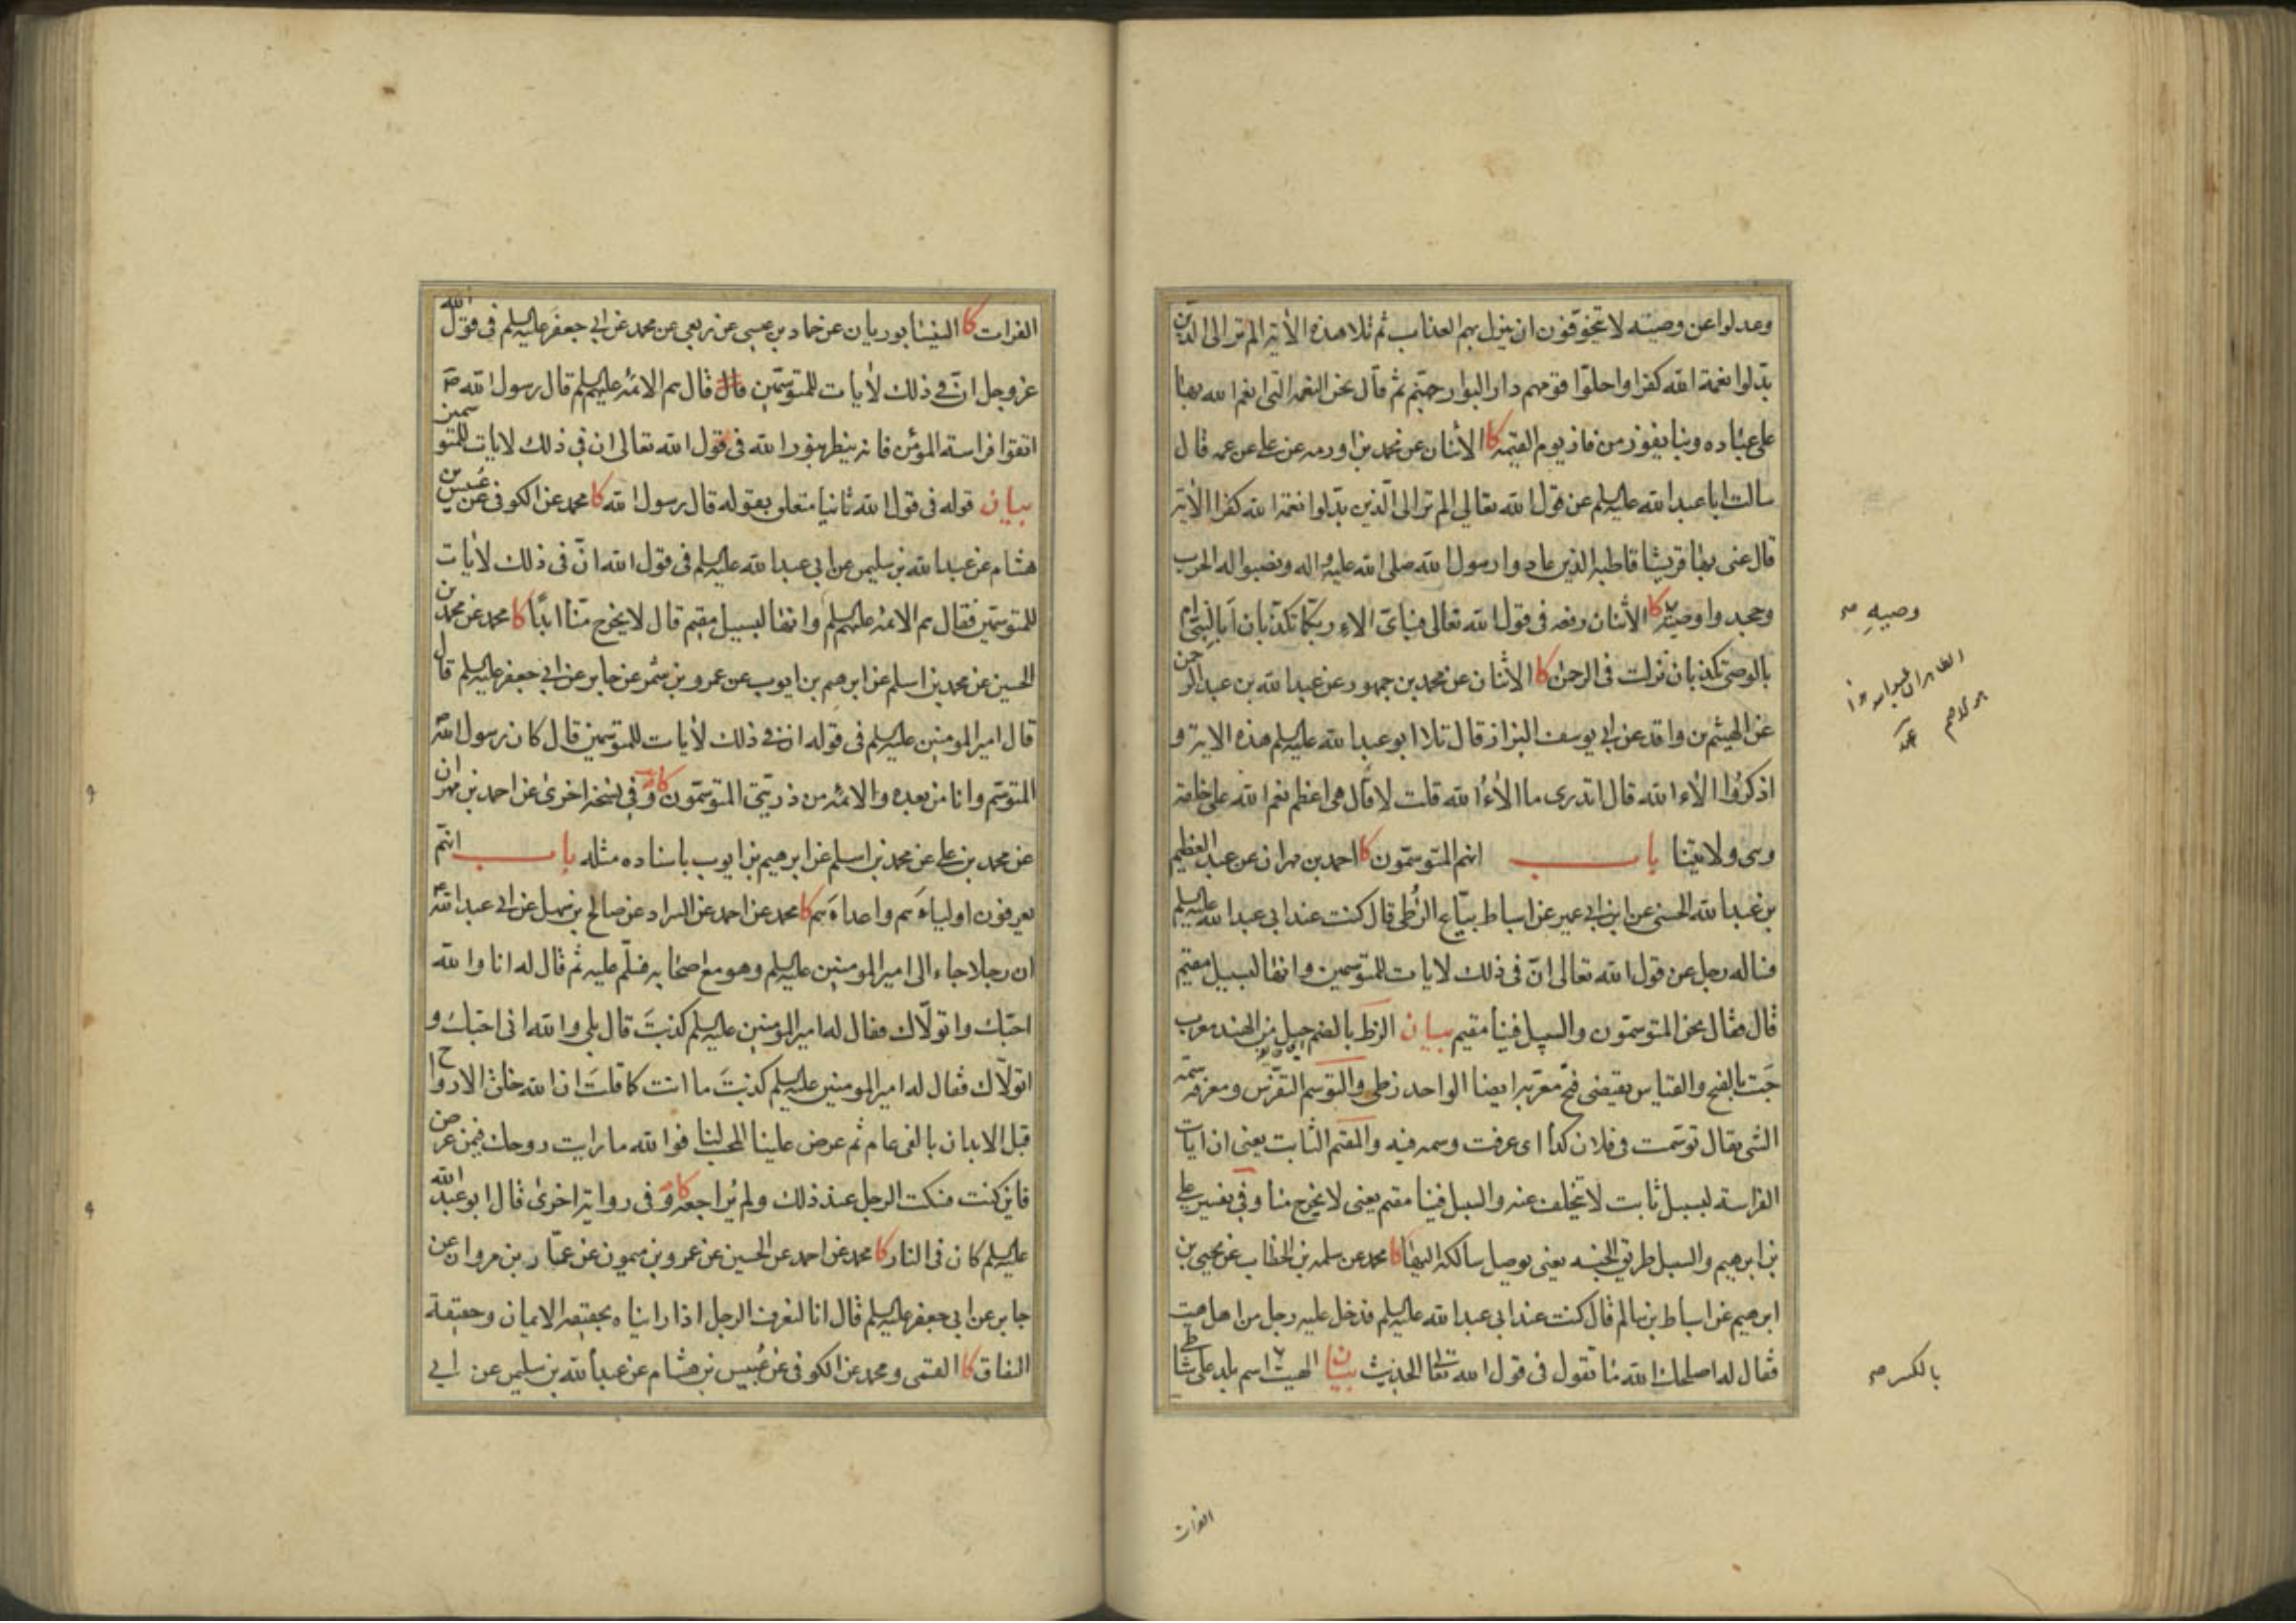 وعدلوا عن وصيته لا تتخوفون ان ينزل بهم العذاب ثم تلا هذه الآية الم تر الى الذين
بدّلوا نعمة الله كفرا واحلّوا قومهم دار البوار جهنم ثم قال نحن النعمة التي انعم الله بها
على عباده وبنا يفوز من فاز يوم القيمة كا الاثنان عن محمد بن اورمه عن علي عن عمه قال
سالت ابا عبد الله عليه السلم عن قول الله تعالى الم تر الى الذين بدّلوا نعمة الله كفرا الآية
قال عنى بها قريشا قاطبة الذين عادوا رسول الله صلى الله عليه واله ونصبوا له الحرب
وجحدوا وصيته كا الاثنان رفعه في قول الله تعالى فباىّ الاء ربّكما تكذّبان أبالنبيّ ام
بالوصي تكذبان نزلت في الرحمن كا الاثنان عن محمد بن جمهور عن عبد الله بن عبد الرحمن
عن الهيثم بن واقد عن ابي يوسف البزاز قال تلا ابو عبد الله عليه السلم هذه الاية و
اذكروا الآء الله قال اتدري ما الآءُ الله قلت لا قال هي اعظم نعم الله على خلقه
وهى ولايتنا باب انهم المتوسمّون كا احمد بن مهران عن عبد العظيم
بن عبد الله الحسني عن ابن ابي عمير عن اسباط بيّاع الزُطى قال كنت عند ابي عبد الله عليه السلم
فساله رجل عن قول الله تعالى انّ في ذلك لايات للمتوسمين وانها لبسبيل مقيم
قال فقال نحن المتوسمّون والسبيل فينا مقيم بيان الزط بالضم جيل من الهند معرب
جَت بالفتح والقياس يقتضى فتح معرّبه ايضا الواحد زطي والتوسم التفرّس ومعرفة سمة
الشى يقال توسّمت في فلان كذا اى عرفت وسمه فيه والمقيم الثابت يعنى ان ايات
الفراسة لبسبيل ثابت لا تتخلف عنه والسبيل فينا مقيم يعنى لا يخرج منا وفي تفسير علي
بن ابرهيم والسبيل طريق الجنّة يعنى يوصل سالكه اليها كا محمد عن سلمه بن الخطاب عن يحيى بن
ابرهيم عن اسباط بن سالم قال كنت عند ابي عبد الله عليه السلم فدخل عليه رجل من اهل هيت
فقال له اصلحك الله ما تقول في قول الله تعا الحديث بيان الهيت اسم بلد على شاطي
وصيه
بالكسر
الفرات
الفرات كا النيسابوريان عن حماد بن عيسى عن ربعي عن محمد عن ابي جعفر عليه السلم في قول الله
عز وجل انّ في ذلك لأيات للمتوسّمين قال قال هم الائمة عليهم السلم قال رسول الله ص
اتقوا فراسة المؤمن فانه ينظر بنور الله في قول الله تعالى ان في ذلك لايات للمتوسمين
بيان قوله في قول الله ثانيا متعلق بقوله قال رسول الله كا محمد عن الكوفي عن عبيس بن
هشام عن عبد الله بن سليمن عن ابي عبد الله عليه السلم في قول الله انّ في ذلك لأيات
للمتوسّمين فقال هم الائمة عليهم السلم وانها لبسبيل مقيم قال لا يخرج منّا ابدًا كا محمد عن محمد بن
الحسين عن محمد بن اسلم عن ابرهيم بن ايوب عن عمرو بن شمر عن جابر عن ابي جعفر عليه السلم قال
قال امير المومنين عليه السلم في قوله ان في ذلك لأيات للمتوسّمين قال كان رسول الله
المتوسّم وانا من بعده والائمة من ذريتي المتوسمّون كا وفي نسخة اخرى عن احمد بن مهران
عن محمد بن علي عن محمد بن اسلم عن ابرهيم بن ايوب باسناده مثله باب انهم
يعرفون اولياءَهم واعداءَهم كا محمد عن احمد عن السراد عن صالح بن سهل عن ابي عبد الله
ان رجلا جاء الى امير المومنين عليه السلم وهو مع اصحابه فسلّم عليه ثم قال له انا والله
احبّك واتولّاك فقال له امير المومنين عليه السلم كذبتَ قال بلى والله اني احبّك و
اتولّاك فقال له امير المومنين عليه السلم كذبتَ ما انت كما قلتَ ان الله خلق الارواح
قبل الابدان بالفي عام ثم عرض علينا المحب لنا فوالله ما رايت روحك فيمن عرض
فاين كنت فسكت الرجل عند ذلك ولم يُراجعه كا وفي رواية اخرى قال ابو عبد الله
عليه السلم كان في النار كا محمد عن احمد عن الحسين عن عمرو بن ميمون عن عمّار بن مروان عن
جابر عن ابي جعفر عليه السلم قال انا لنعرف الرجل اذا رايناه بحقيقة الايمان وحقيقة
النفاق كا القمى ومحمد عن الكوفي عن عُبيس بن هشام عن عبد الله بن سليمن عن ابي